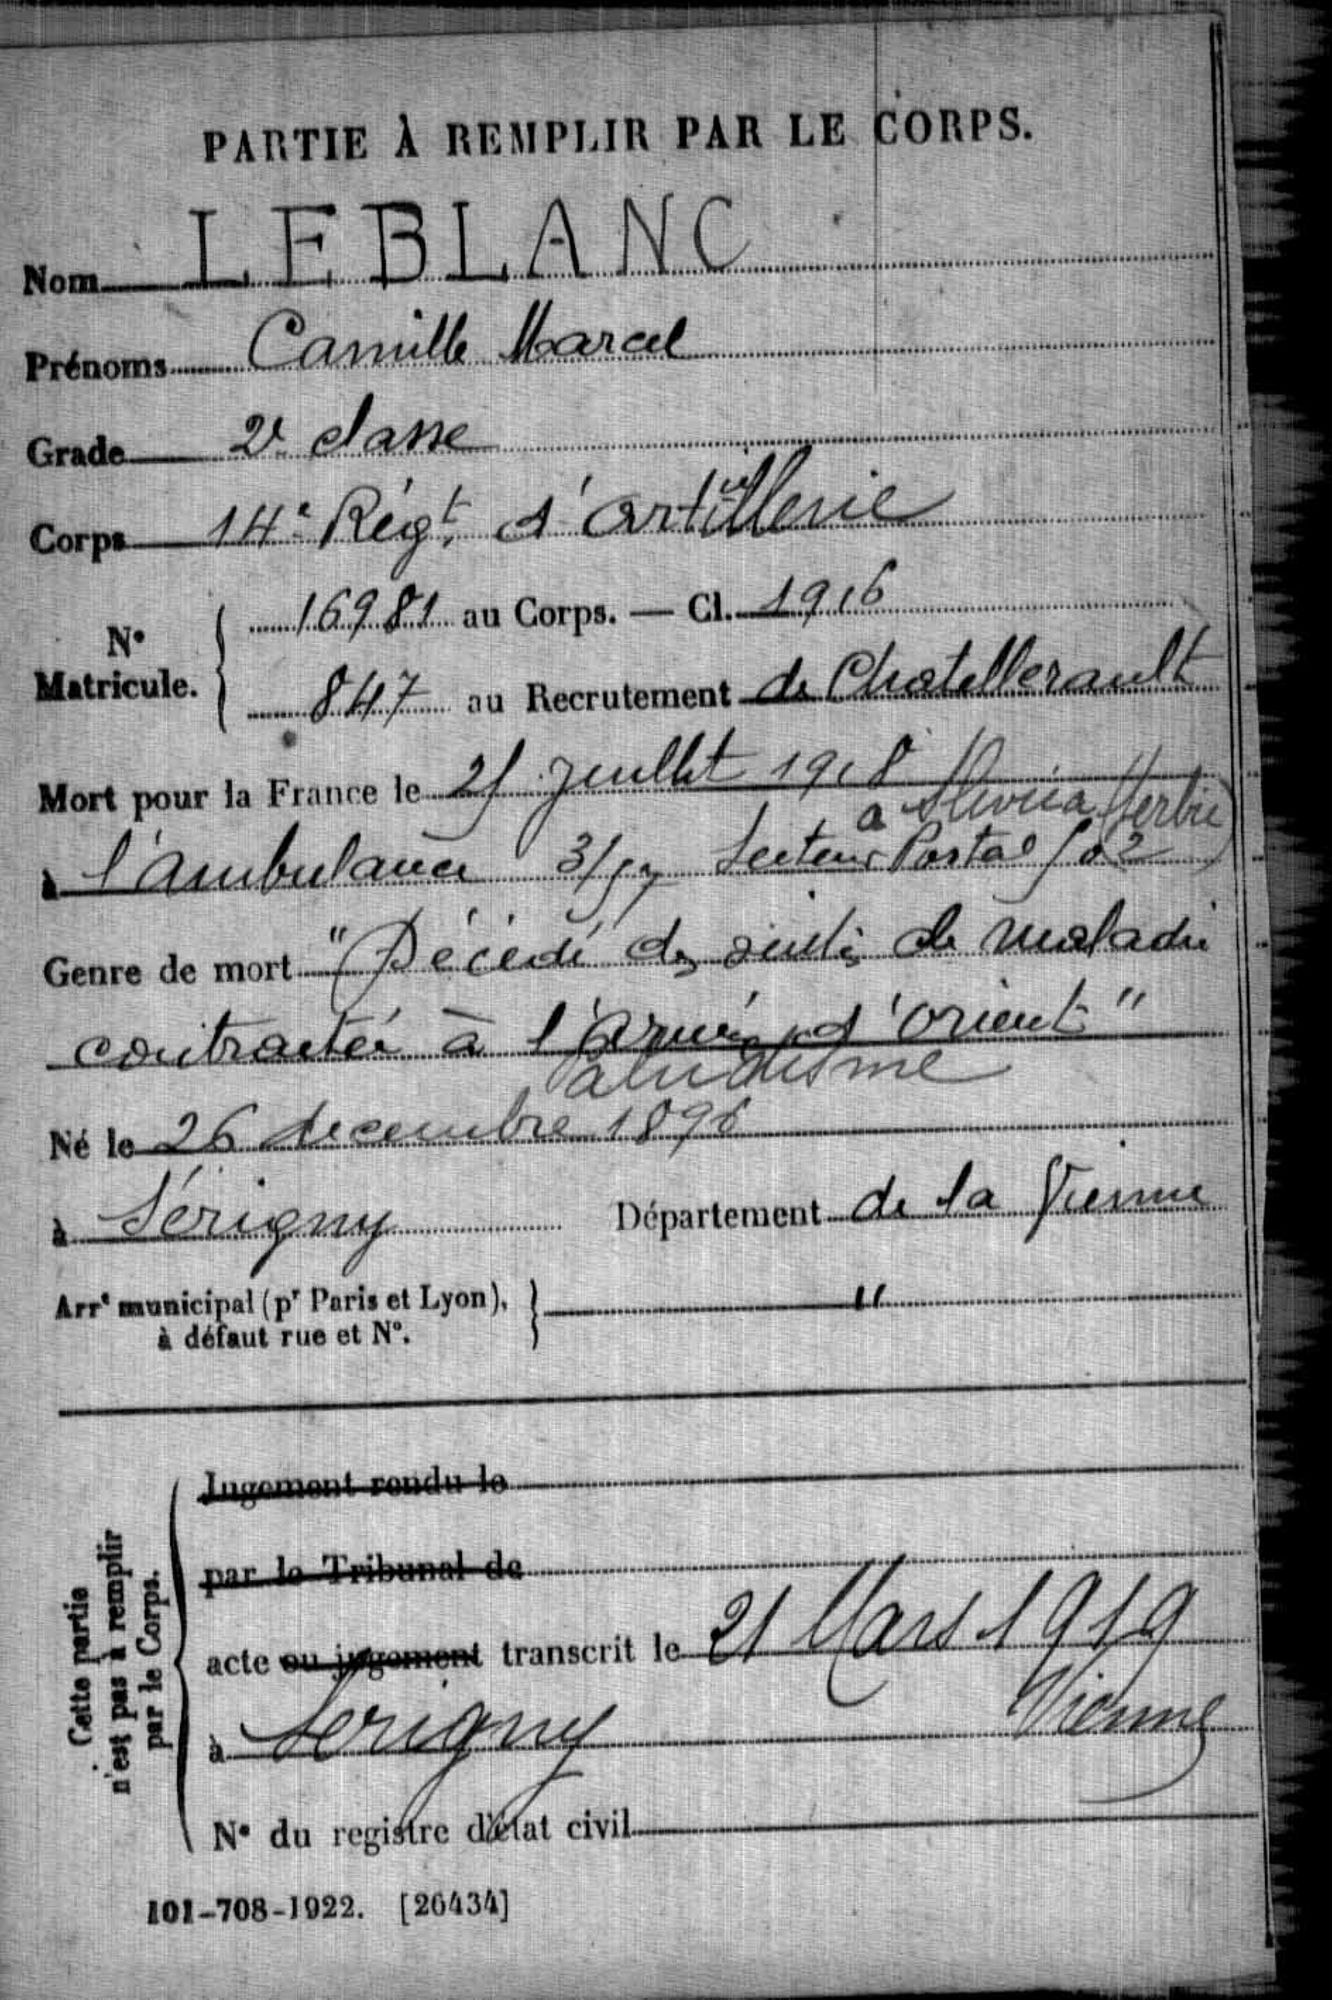 PARTIE À REMPLIR PAR LE CORPS.
Nom LEBLANC
Prénoms Camille Marcel
Grade 2e classe
Corps 14e Régt. d'artillerie
N° Matricule. 16981 au Corps. — Cl. 1916
847 au Recrutement de Chatellerault
Mort pour la France le 25 Juillet 1918
a Slivica (Serbie)
à l'ambulance 3/57 Secteur Postal 502
Genre de mort "Décédé des suites de maladie
contractée à l'armée d'orient"
Paludisme
Né le 26 decembre 1896
à Sérigny Département de la Vienne
Arrt municipal (pr Paris et Lyon), "
à défaut rue et N°.
Cette partie
n'est pas à remplir
par le Corps.
Jugement rendu le
par le Tribunal de
acte ou jugement transcrit le 21 Mars 1919
à Serigny Vienne
N° du registre d'état civil
101-708-1922. [26434]